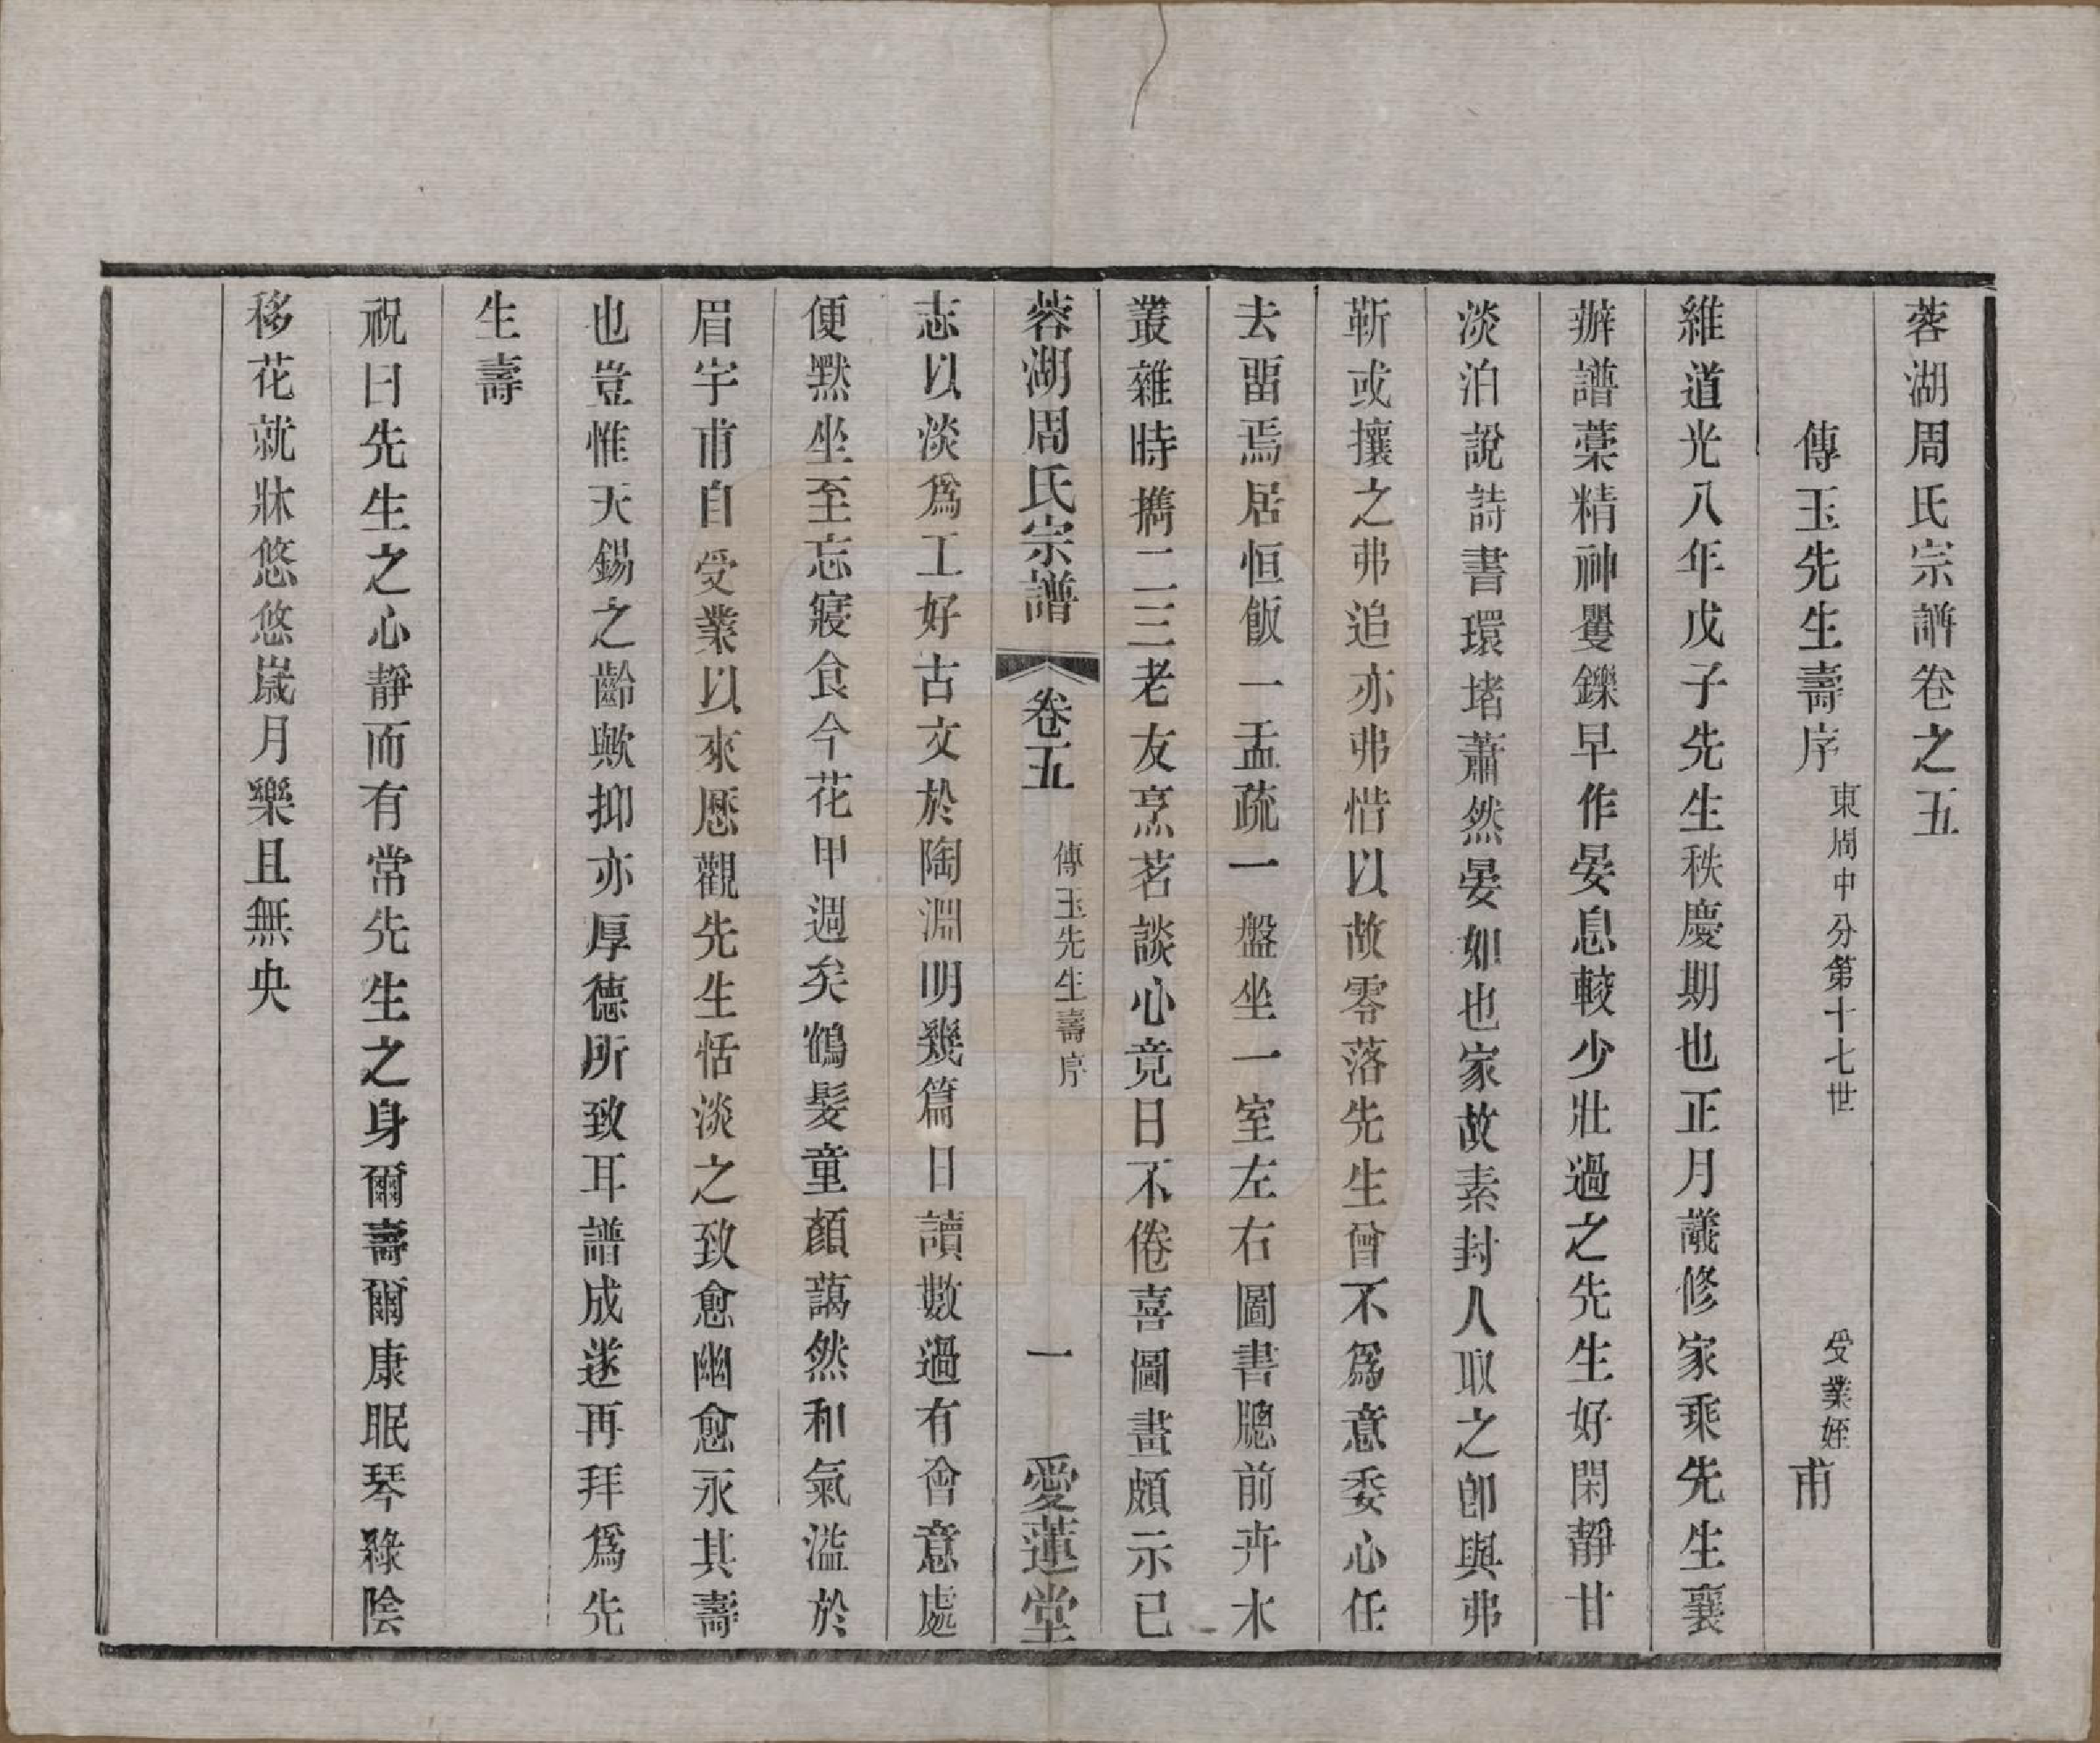 蓉湖周氏宗譜卷之五
傳玉先生壽序 東周中分第十七世 受業姪 甫
維道光八年戊子先生秩慶期也正月議修家乘先生襄
辦譜藁精神矍鑠早作晏息較少壯過之先生好閑靜甘
淡泊說詩書環堵蕭然晏如也家故素封人取之卽與弗
靳或攘之弗追亦弗惜以故零落先生曾不爲意委心任
去畱焉居恒飯一盂疏一盤坐一室左右圖書牕前卉木
叢雜時攜二三老友烹茗談心竟日不倦喜圖畫頗示已
蓉湖周氏宗譜 卷五 傳玉先生壽序 一 愛蓮堂
志以淡爲工好古文於陶淵明幾篇日讀數過有會意處
便默坐至忘寢食今花甲週矣鶴髮童顏藹然和氣溢於
眉宇甫自受業以來歷觀先生恬淡之致愈幽愈永其壽
也豈惟天錫之齡歟抑亦厚德所致耳譜成遂再拜爲先
生壽
祝曰先生之心靜而有常先生之身爾壽爾康眠琴綠陰
移花就牀悠悠歲月樂且無央